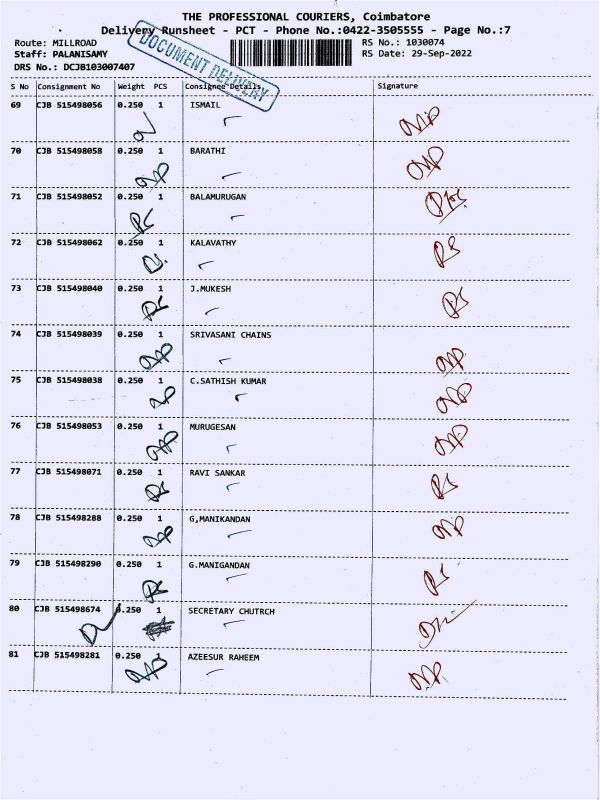 THE PROFESSIONAL COURIERS, Coimbatore
Delivery Runsheet - PCT - Phone No.:0422-3505555 - Page No.:7
Route: MILLROAD
RS No.: 1030074
Staff: PALANISAMY
RS Date: 29-Sep-2022
DRS No.: DCJB103007407
DOCUMENT DELIVERY
S No Consignment No Weight PCS Consignee Details Signature
69 CJB 515498056 0.250 1 ISMAIL
70 CJB 515498058 0.250 1 BARATHI
71 CJB 515498052 0.250 1 BALAMURUGAN
72 CJB 515498062 0.250 1 KALAVATHY
73 CJB 515498040 0.250 1 J.MUKESH
74 CJB 515498039 0.250 1 SRIVASANI CHAINS
75 CJB 515498038 0.250 1 C.SATHISH KUMAR
76 CJB 515498053 0.250 1 MURUGESAN
77 CJB 515498071 0.250 1 RAVI SANKAR
78 CJB 515498288 0.250 1 G,MANIKANDAN
79 CJB 515498290 0.250 1 G.MANIGANDAN
80 CJB 515498674 0.250 1 SECRETARY CHUTRCH
81 CJB 515498281 0.250 1 AZEESUR RAHEEM